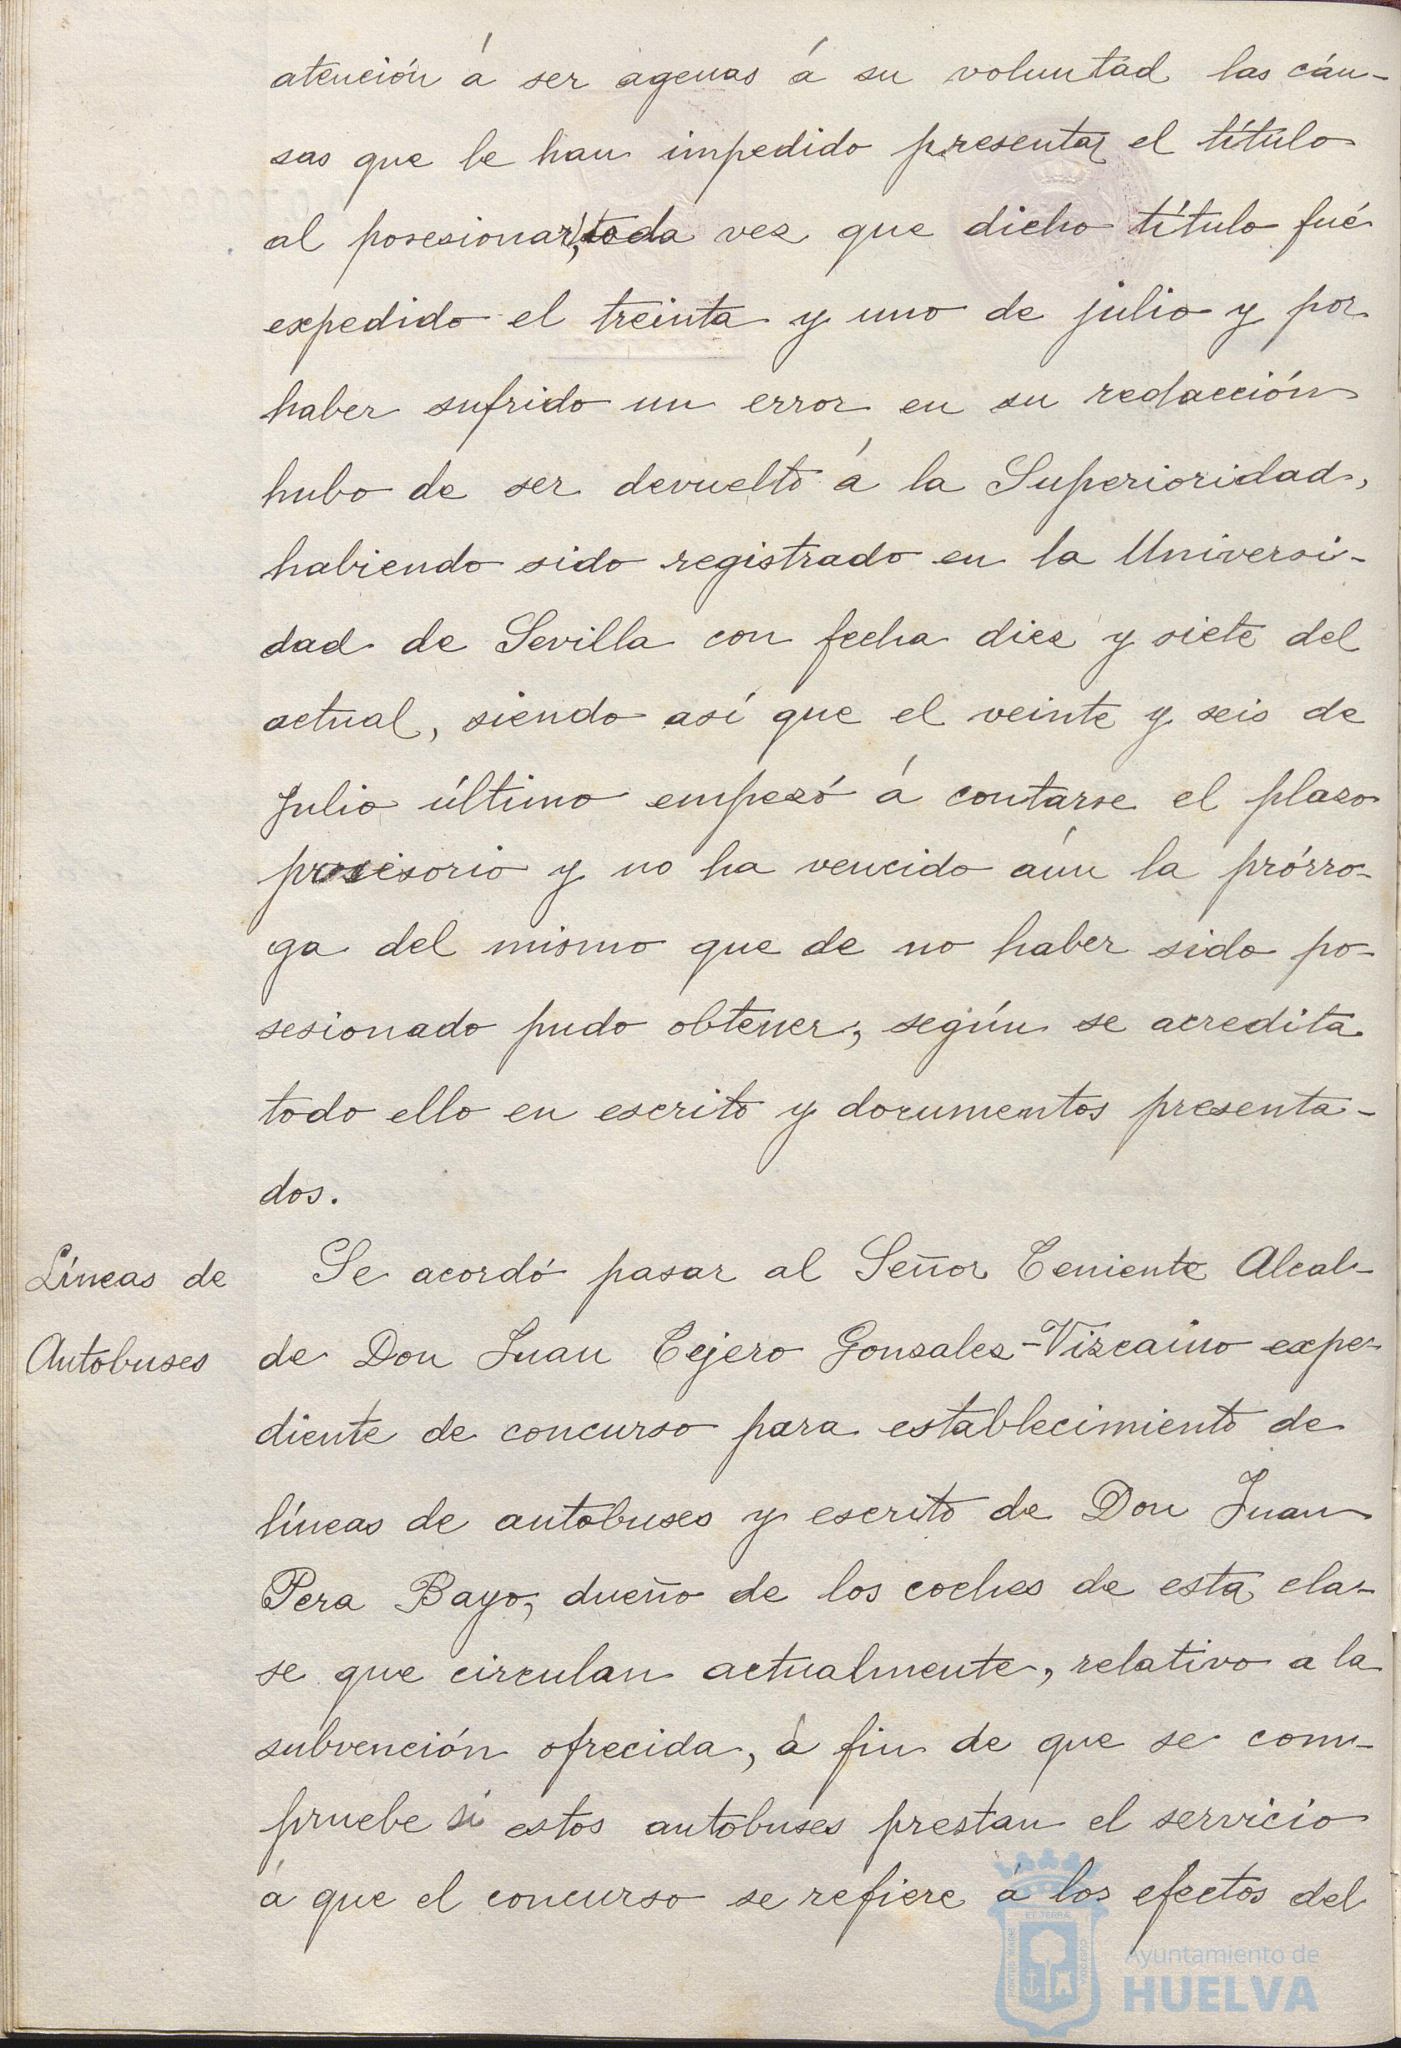 atención á ser agenas á su voluntad las cáu-
sas que le han impedido presentar el título
al posesionar, toda vez que dicho título fué
expedido el treinta y uno de julio y por
haber sufrido un error en su redacción
hubo de ser devuelto á la Superioridad,
habiendo sido registrado en la Universi-
dad de Sevilla con fecha diez y siete del
actual, siendo así que el veinte y seis de
Julio último empezó á contarse el plazo
posesorio y no ha vencido aún la prórro-
ga del mismo que de no haber sido po-
sesionado pudo obtener, según se acredita
todo ello en escrito y documentos presenta-
dos.
Líneas de
Autobuses
Se acordó pasar al Señor Teniente Alcal-
de Don Juan Tejero Gonzalez-Vizcaino expe-
diente de concurso para establecimiento de
líneas de autobuses y escrito de Don Juan
Pera Bayo, dueño de los coches de esta cla-
se que circulan actualmente, relativo a la
subvención ofrecida, á fin de que se com-
pruebe si estos autobuses prestan el servicio
á que el concurso se refiere á los efectos del
Ayuntamiento de
HUELVA